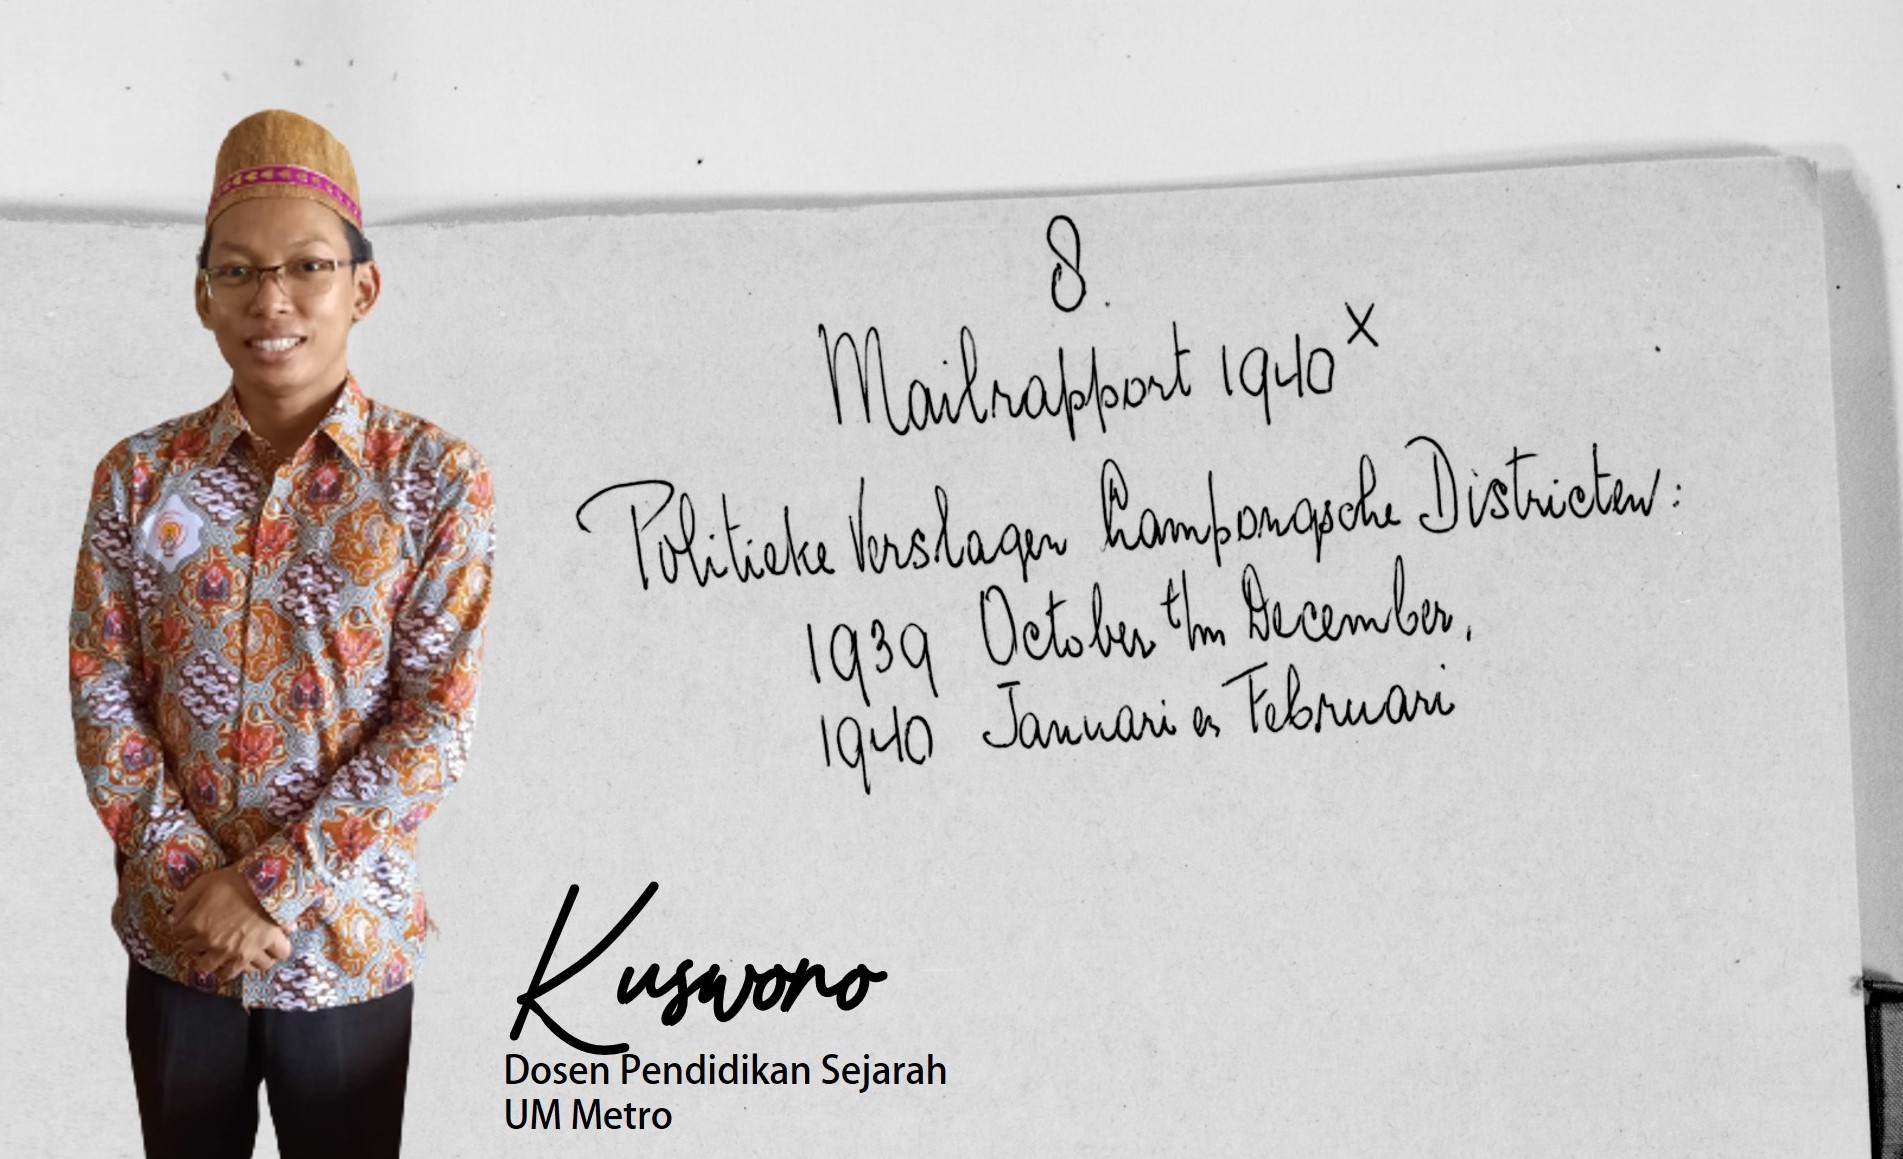 8.
Mailrapport 1940 x
Politieke Verslagen Lampongsche Districten:
1939 October t/m December,
1940 Januari en Februari
Kuswono
Dosen Pendidikan Sejarah
UM Metro